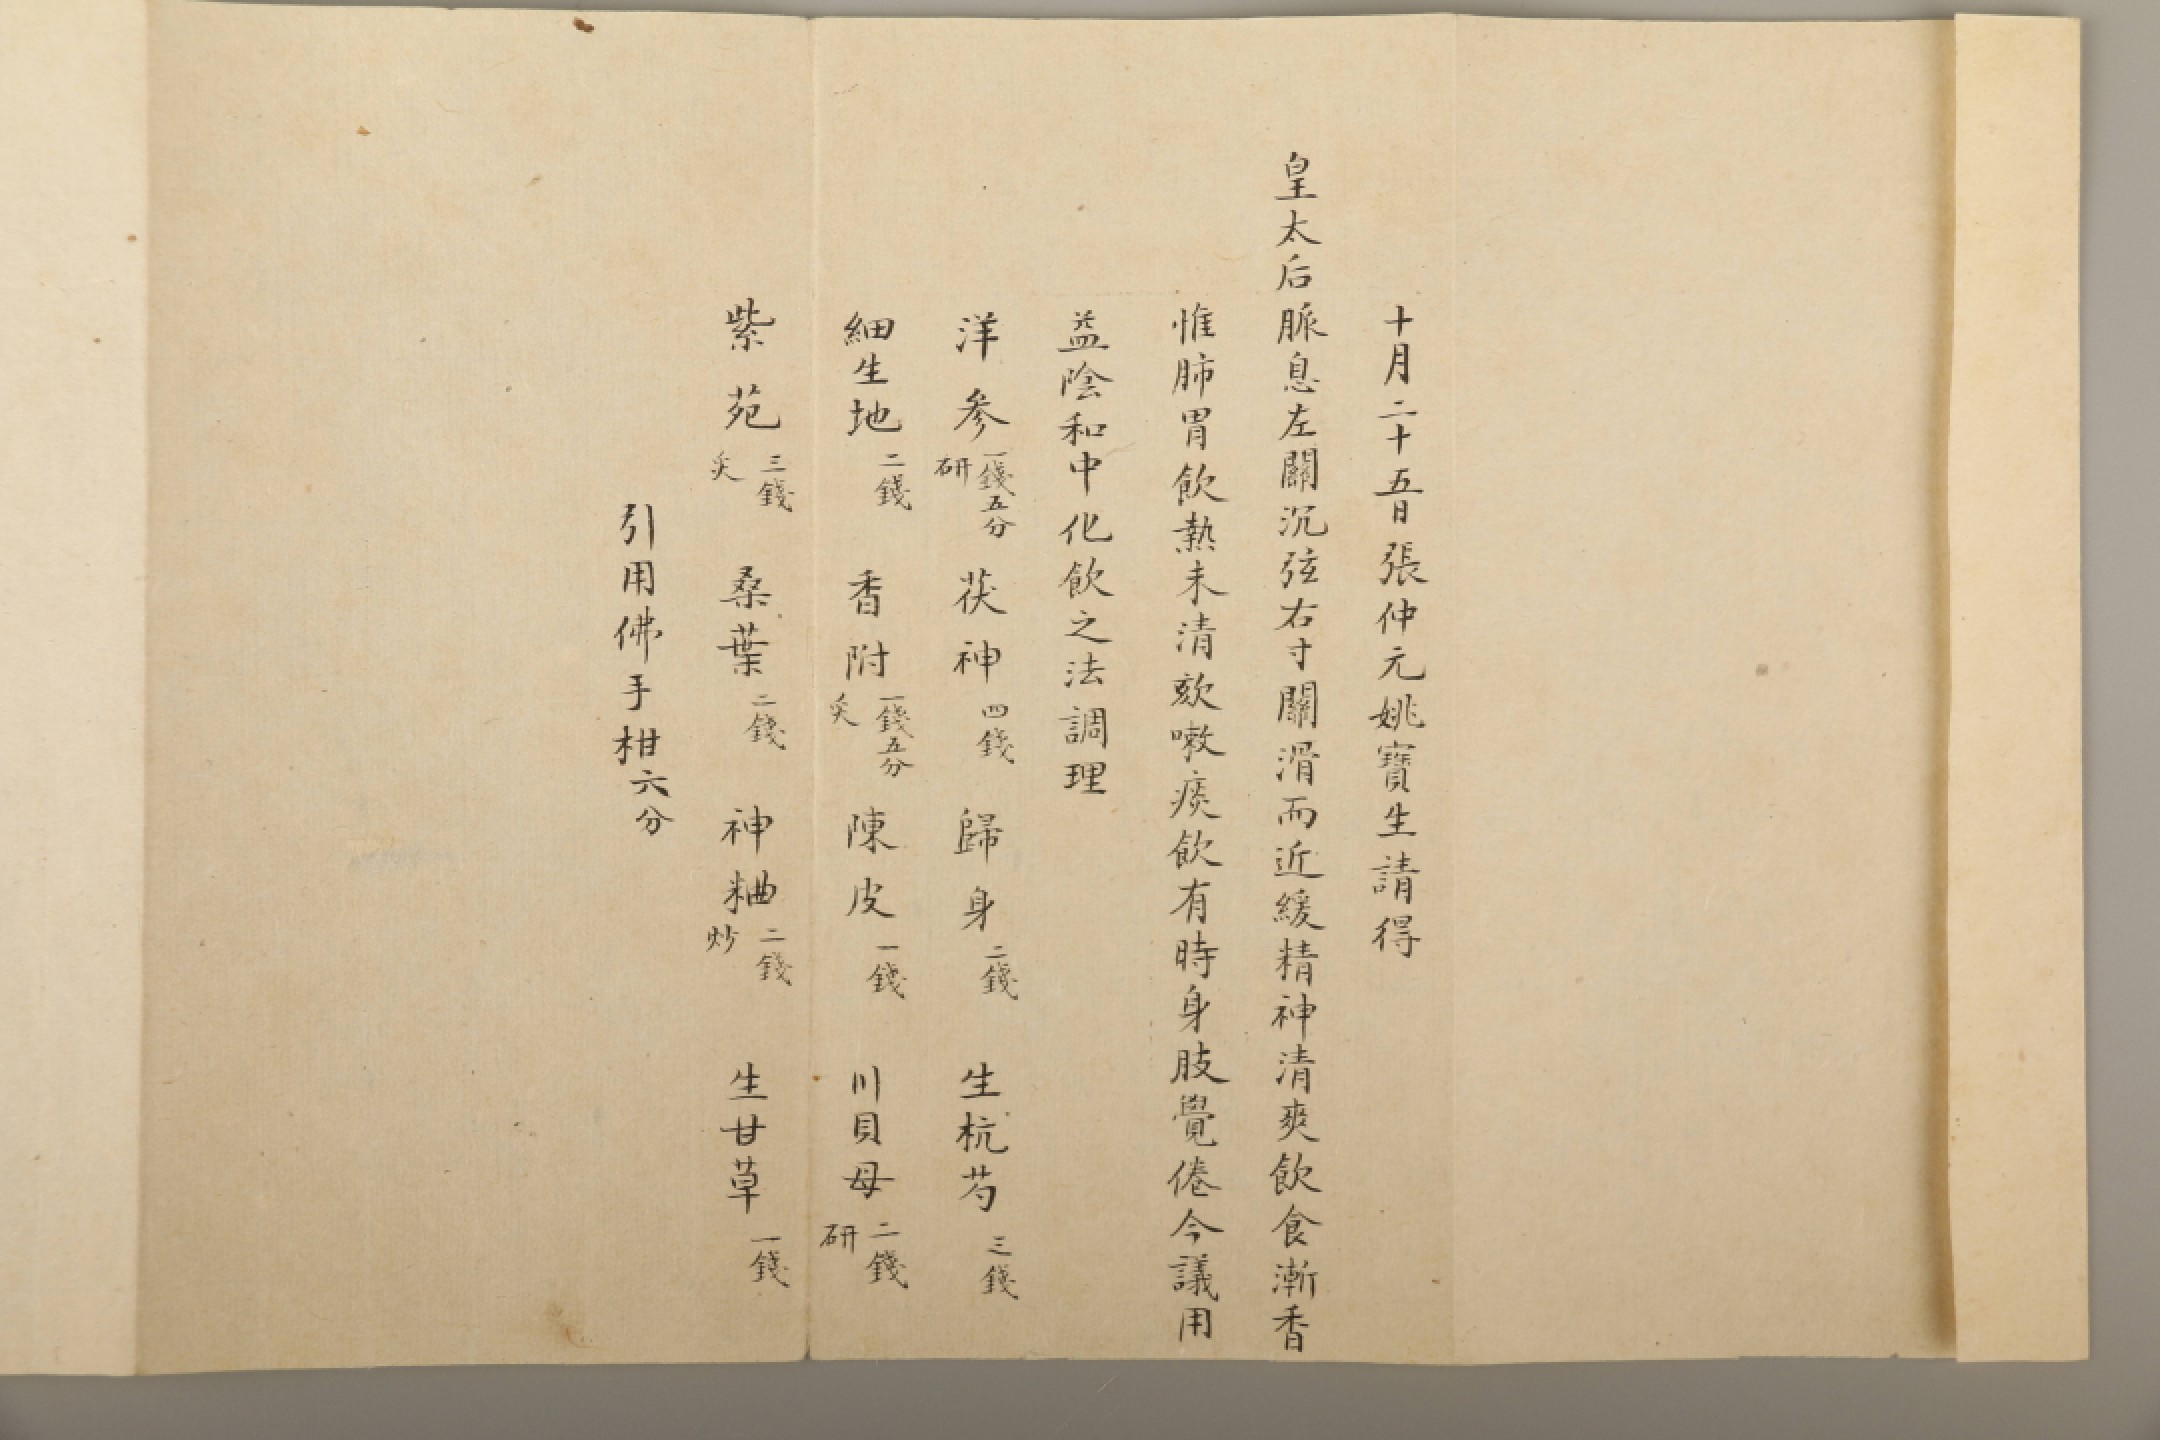 十月二十五日張仲元姚寶生請得
皇太后脈息左關沉弦右寸關滑而近緩精神清爽飲食漸香
惟肺胃飲熱未清欬嗽痰飲有時身肢覺倦今議用
益陰和中化飲之法調理
洋參一錢五分研 茯神四錢 歸身二錢 生杭芍三錢
細生地二錢 香附一錢五分炙 陳皮一錢 川貝母二錢研
紫苑三錢炙 桑葉二錢 神粬二錢炒 生甘草一錢
引用佛手柑六分